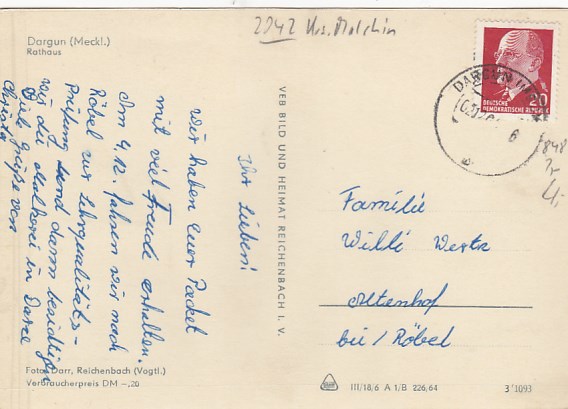 2042 Krs. Malchin
Dargun (Meckl.)
Rathaus
DEUTSCHE
DEMOKRATISCHE REPUBLIK
20
DARGUN
6
Ihr Lieben!
Wir haben Euer Packet
mit viel Freude erhalten.
Am 4.12. fahren wir nach
Röbel zur Lehrqualitäts-
Prüfung und dann besichtigen
wir die Molkerei in
Viele Grüße von
Christa
VEB BILD UND HEIMAT REICHENBACH I. V.
Familie
Willi
Altenhof
bei/Röbel
Foto: Darr, Reichenbach (Vogtl.)
Verbraucherpreis DM -,20
III/18/6 A 1/B 226/64
3/1093